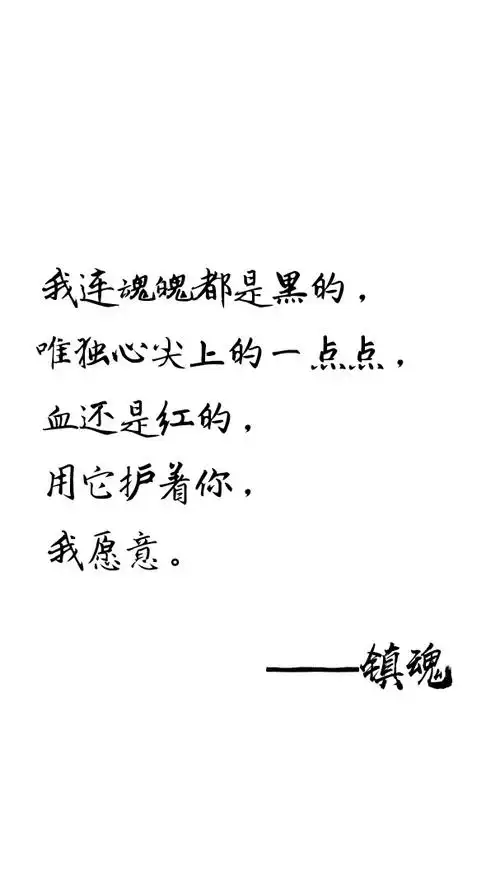 我连魂魄都是黑的，
唯独心尖上的一点点，
血还是红的，
用它护着你，
我愿意。
——镇魂